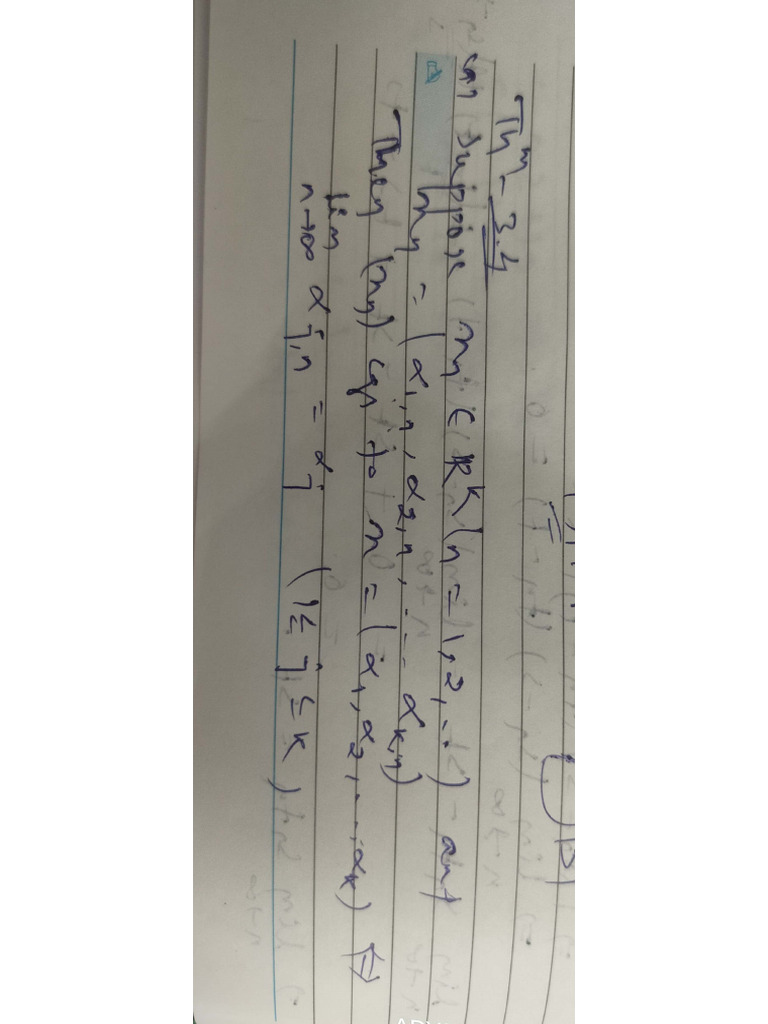 Thm - 3.4
(a) Suppose (xn ∈ ℝᵏ (n = 1, 2, ...) and
xn = (α1,n, α2,n, ... αk,n)
Then (xn) cgs to x = (α1, α2, ..., αk) ⇔
lim n→∞ αj,n = αj (1 ≤ j ≤ k)